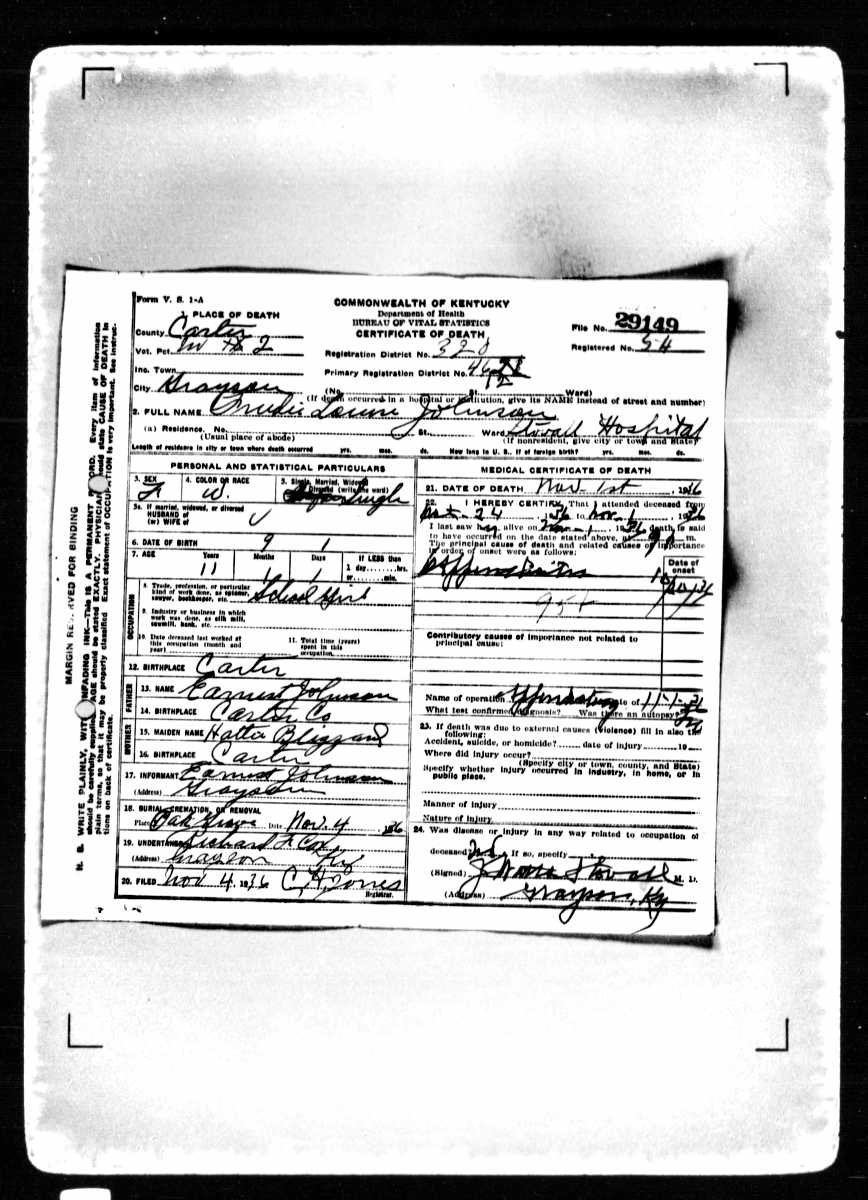 Form V. S. 1-A
COMMONWEALTH OF KENTUCKY
Department of Health
BUREAU OF VITAL STATISTICS
CERTIFICATE OF DEATH
File No. 29149
Registered No. 54
1. PLACE OF DEATH
County Carter
Vot. Pct. 2
Registration District No. 320
Inc. Town
Primary Registration District No.
City Grayson (No. St. Ward)
(If death occurred in a hospital or institution, give its NAME instead of street and number)
2. FULL NAME Louise Johnson
(a) Residence. No. St. Ward Stovall Hospital
(Usual place of abode) (If nonresident, give city or town and State)
Length of residence in city or town where death occurred yrs. mos. ds. How long in U. S., if of foreign birth? yrs. mos. ds.
PERSONAL AND STATISTICAL PARTICULARS
3. SEX F
4. COLOR OR RACE W.
5. Single, Married, Widowed, Divorced (write the word) Single
5a. If married, widowed, or divorced
HUSBAND of
(or) WIFE of
6. DATE OF BIRTH 9 1
7. AGE Years Months Days If LESS than
1 day hrs.
or min.
11 1
OCCUPATION
8. Trade, profession, or particular kind of work done, as spinner, sawyer, bookkeeper, etc. School Girl
9. Industry or business in which work was done, as silk mill, sawmill, bank, etc.
10. Date deceased last worked at this occupation (month and year)
11. Total time (years) spent in this occupation
12. BIRTHPLACE Carter
FATHER
13. NAME Earnest Johnson
14. BIRTHPLACE Carter Co
MOTHER
15. MAIDEN NAME Hattie Blizzard
16. BIRTHPLACE Carter
17. INFORMANT Earnest Johnson
(Address) Grayson
18. BURIAL, CREMATION, OR REMOVAL
Place Oak Grove Date Nov. 4 1936
19. UNDERTAKER F Cox
(Address) Grayson Ky
20. FILED Nov 4, 1936 C. H. Jones
Registrar.
MEDICAL CERTIFICATE OF DEATH
21. DATE OF DEATH Nov. 1st 1936
22. I HEREBY CERTIFY, That I attended deceased from
Oct. 24 36 to Nov. 1 1936
I last saw h alive on Nov 1 1936 death is said
to have occurred on the date stated above, at m.
The principal cause of death and related causes of importance
in order of onset were as follows:
Date of onset
Appendicitis
Contributory causes of importance not related to
principal cause:
Name of operation Appendectomy Date of 11-1-36
What test confirmed diagnosis? Was there an autopsy?
23. If death was due to external causes (violence) fill in also the
following:
Accident, suicide, or homicide? date of injury 19
Where did injury occur?
(Specify city or town, county, and State)
Specify whether injury occurred in industry, in home, or in
public place.
Manner of injury
Nature of injury
24. Was disease or injury in any way related to occupation of
deceased? No If so, specify
(Signed) J Watts Stovall M. D.
(Address) Grayson, Ky
MARGIN RESERVED FOR BINDING